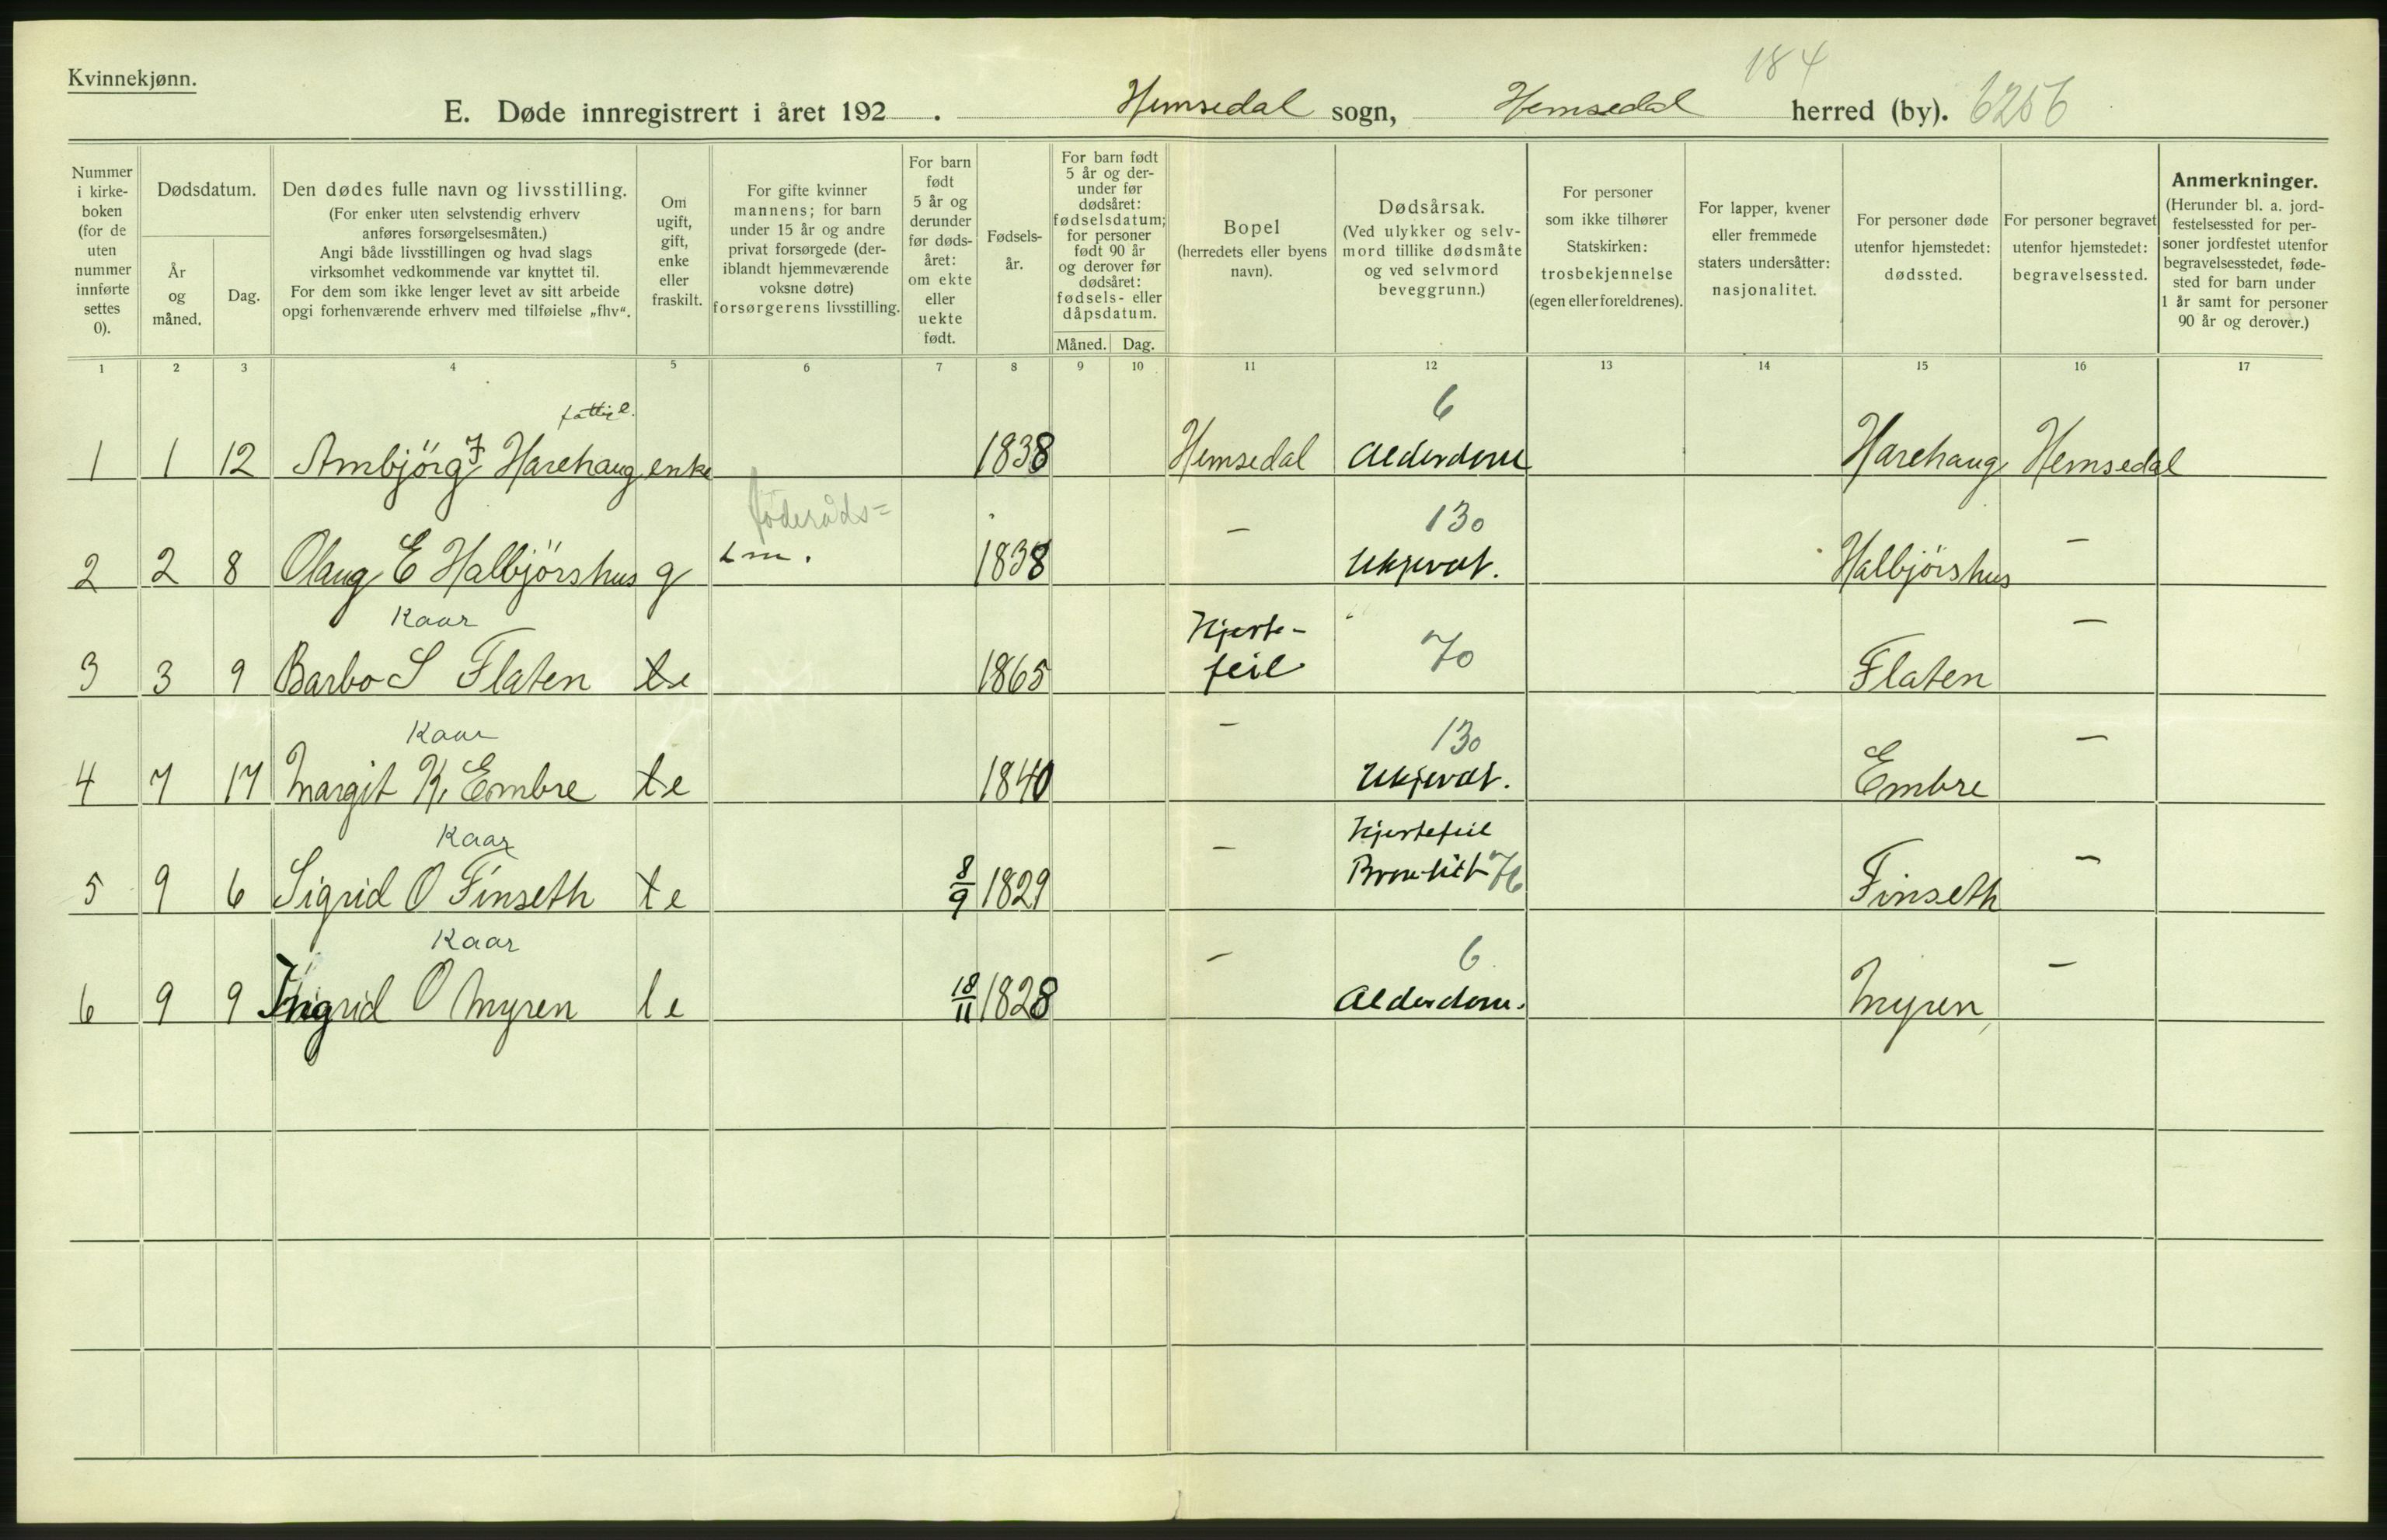 Kvinnekjønn.
184
E. Døde innregistrert i året 192 . Hemsedal sogn, Hemsedal herred (by). 6256
Nummer i kirke-boken (for de uten nummer innførte settes 0).
Dødsdatum.
År og måned.
Dag.
Den dødes fulle navn og livsstilling.
(For enker uten selvstendig erhverv anføres forsørgelsesmåten.)
Angi både livsstillingen og hvad slags virksomhet vedkommende var knyttet til.
For dem som ikke lenger levet av sitt arbeide opgi forhenværende erhverv med tilføielse „fhv“.
Om ugift, gift, enke eller fraskilt.
For gifte kvinner mannens; for barn under 15 år og andre privat forsørgede (deriblandt hjemmeværende voksne døtre) forsørgerens livsstilling.
For barn født 5 år og derunder før døds-året: om ekte eller uekte født.
Fødsels-år.
For barn født 5 år og der-under før dødsåret: fødselsdatum; for personer født 90 år og derover før dødsåret: fødsels- eller dåpsdatum.
Måned. Dag.
Bopel
(herredets eller byens navn).
Dødsårsak.
(Ved ulykker og selv-mord tillike dødsmåte og ved selvmord beveggrunn.)
For personer som ikke tilhører Statskirken: trosbekjennelse (egen eller foreldrenes).
For lapper, kvener eller fremmede staters undersåtter: nasjonalitet.
For personer døde utenfor hjemstedet: dødssted.
For personer begravet utenfor hjemstedet: begravelsessted.
Anmerkninger.
(Herunder bl. a. jord-festelsessted for per-soner jordfestet utenfor begravelsesstedet, føde-sted for barn under 1 år samt for personer 90 år og derover.)
1 2 3 4 5 6 7 8 9 10 11 12 13 14 15 16 17
6
1 1 12 Ambjörg Harehaug enke 1838 Hemsedal Alderdom Harehaug Hemsedal
föderåds=
130
2 2 8 Olaug E Halbjörshus g 1838 - Ukjendt. Halbjörshus -
Kaar
Hjerte-
3 3 9 Barbo S Flaten e 1865 feil 70 Flaten -
Kaar
130
4 7 17 Margit K. Embre e 1840 - Ukjendt. Embre -
Kaar
Hjertefeil
5 9 6 Sigrid O Finseth e 8/9 1829 - Bronkitt 76 Finseth -
Kaar
6
6 9 9 Ingrid O Myren e 18/11 1828 - Alderdom. Myren -